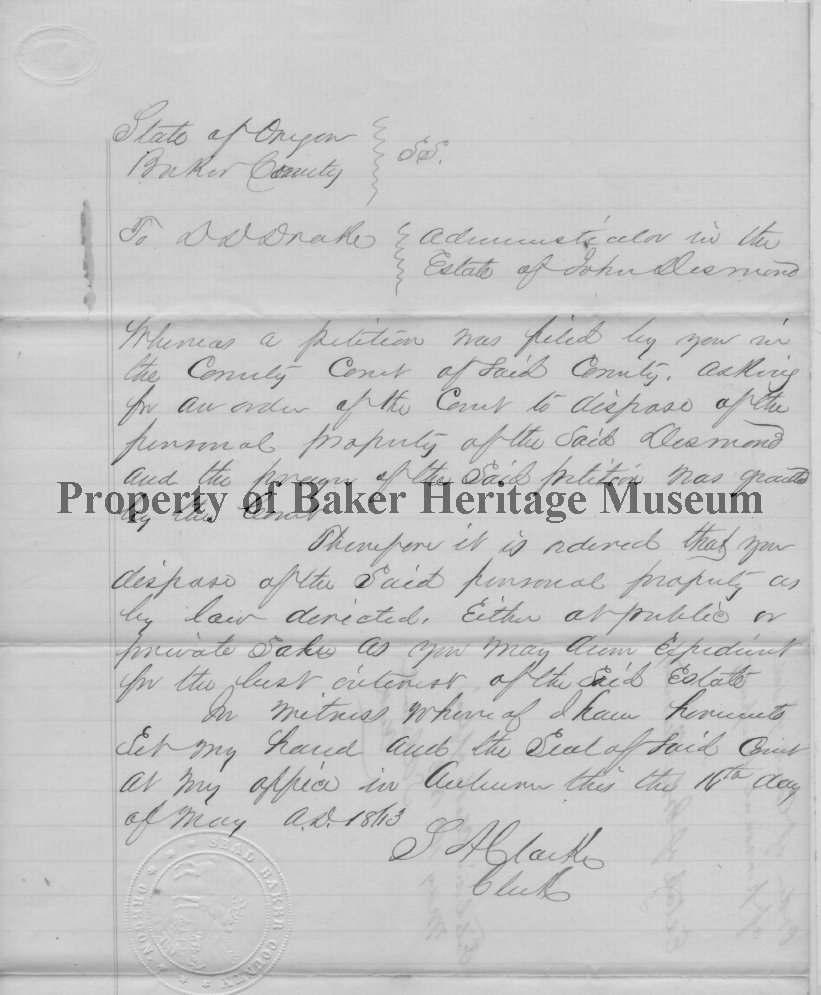 State of Oregon
Baker County } SS.
To D D Drake } Administrator in the
Estate of John Desmond
Whereas a petition was filed by you in
the County Court of Said County. asking
for an order of the Court to dispose of the
personal property of the Said Desmond
and the prayer of the Said petition was granted
by the Court
Property of Baker Heritage Museum
Therefore it is ordered that you
dispose of the Said personal property as
by law directed. Either at public or
private Sale as you may deem Expedient
for the best interest of the Said Estate
In Witness Whereof I have hereunto
Set my hand and the Seal of Said Court
at my office in Auburn this the 16th day
of May A.D. 1863
S A Clarke
Clerk
SEAL BAKER COUNTY OREGON